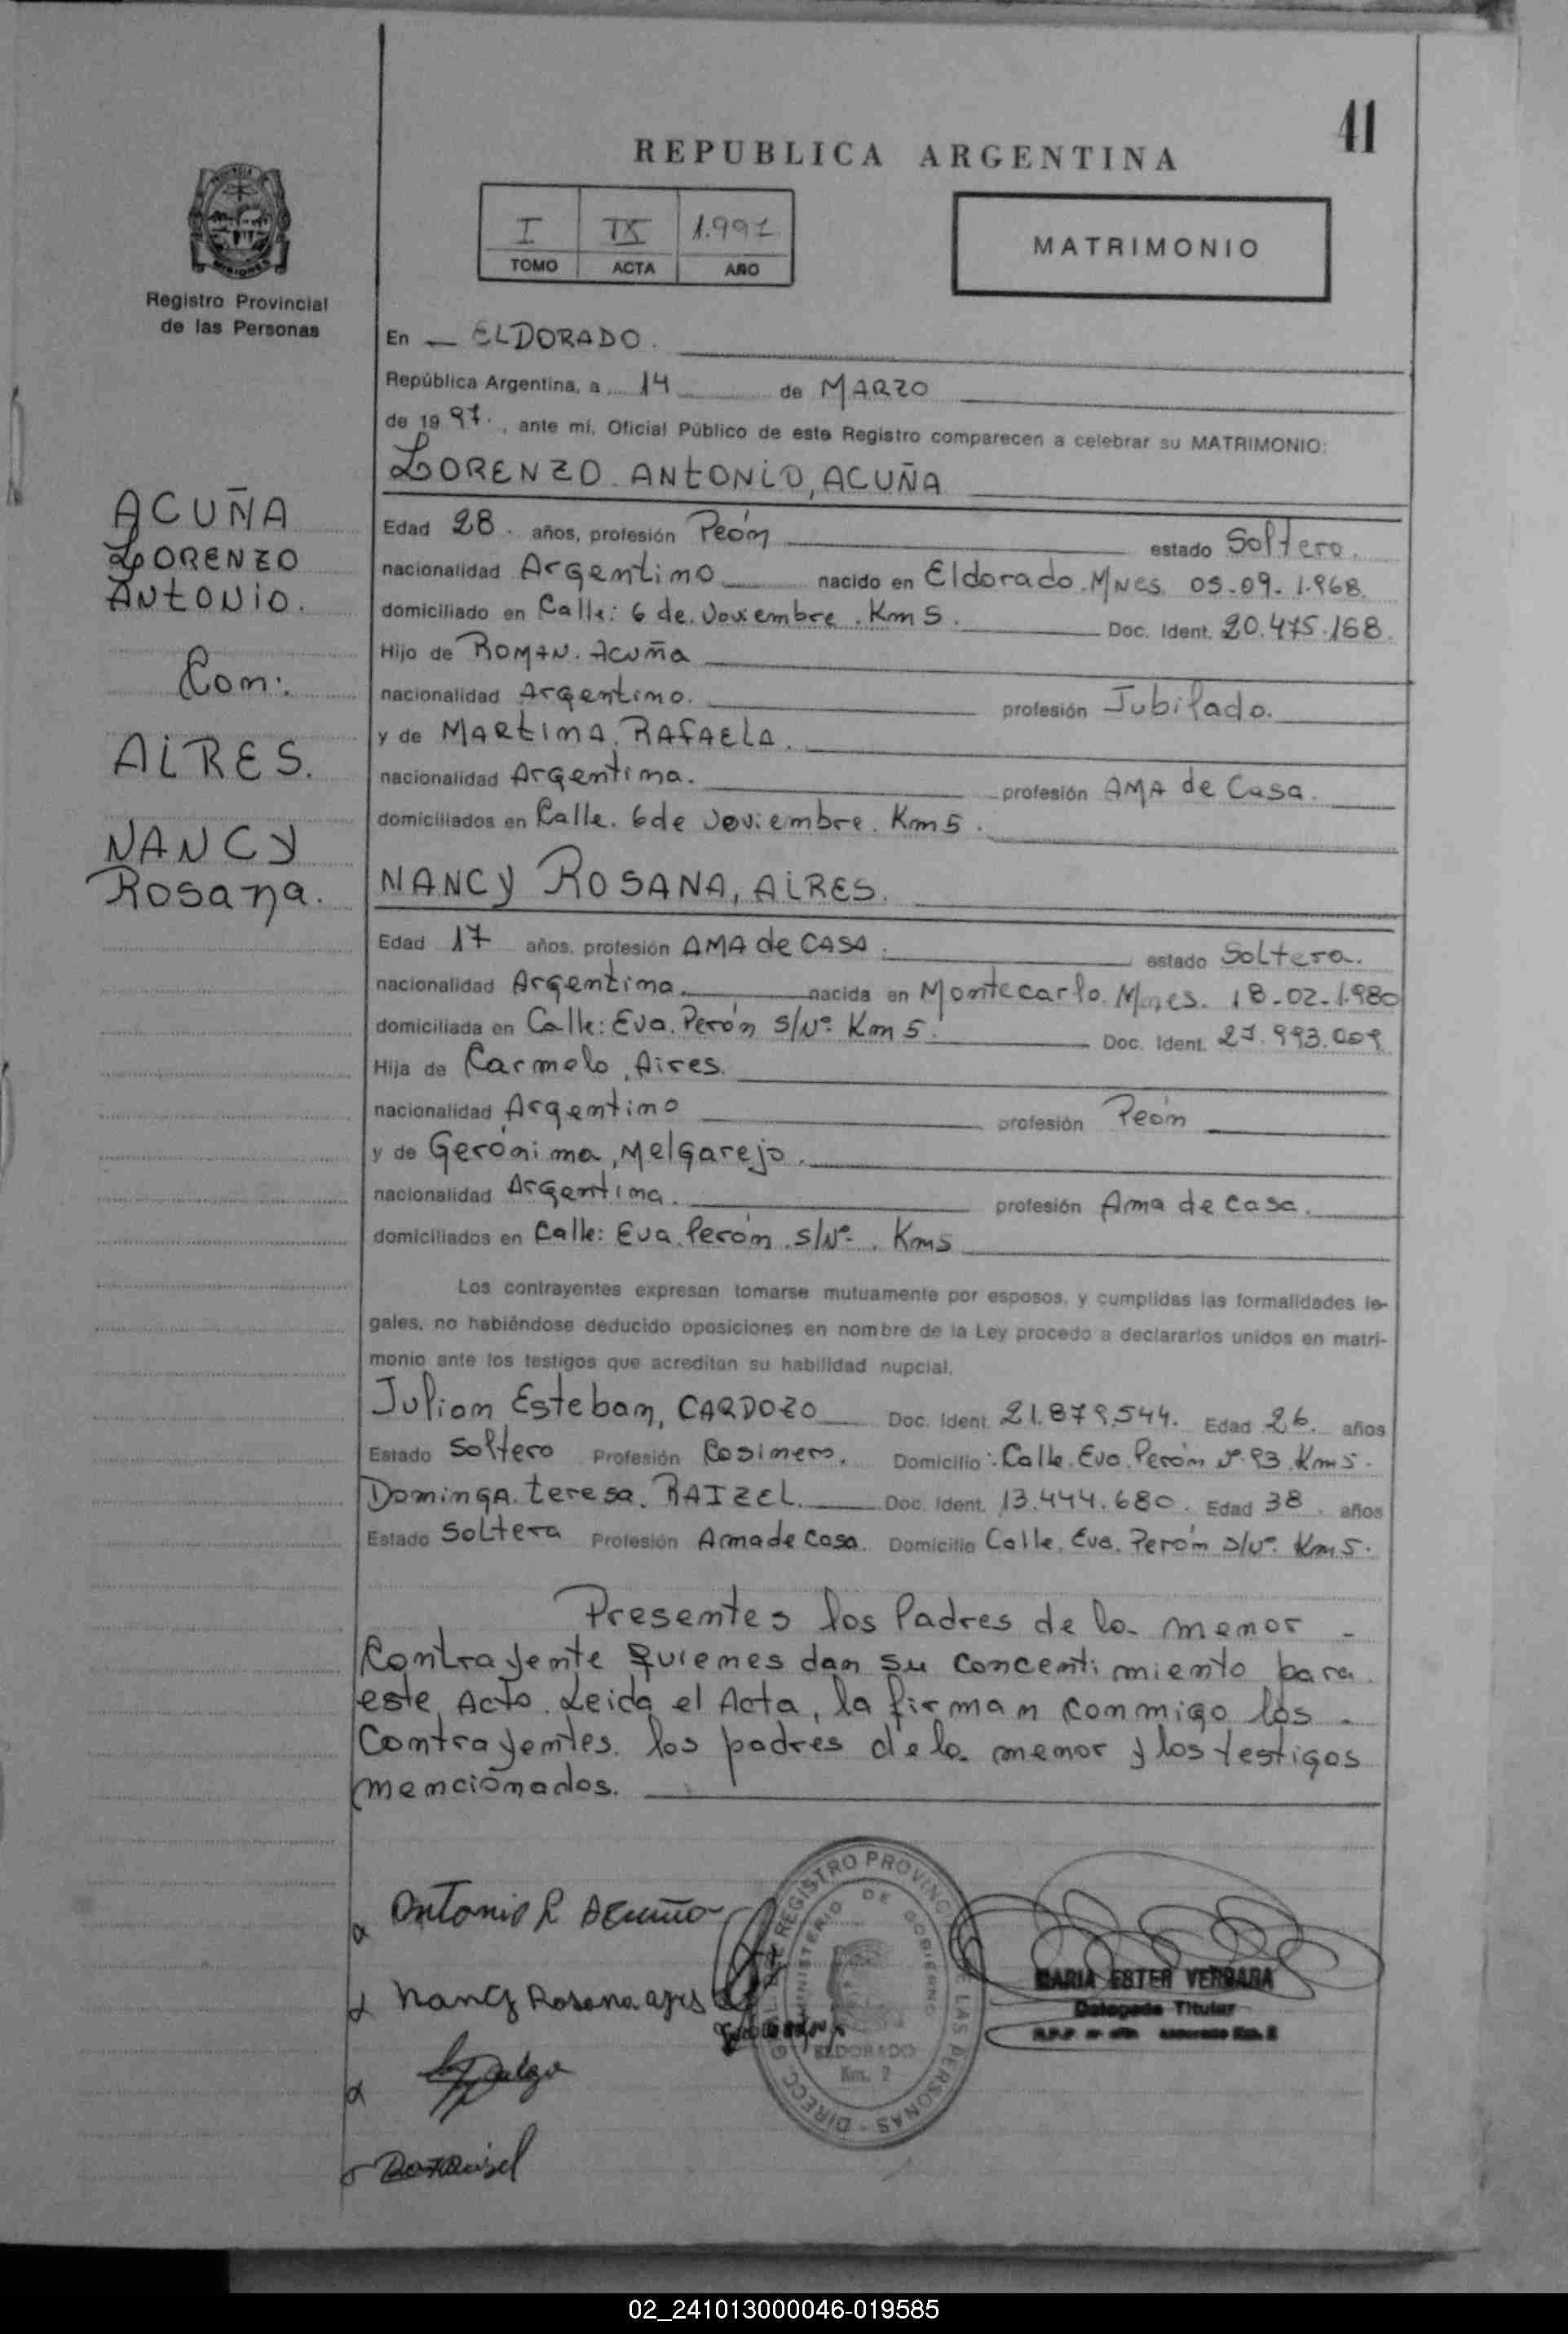 41
REPUBLICA ARGENTINA
I IX 1.997
TOMO ACTA AÑO
MATRIMONIO
MISIONES
Registro Provincial
de las Personas
En ELDORADO.
República Argentina, a 14 de MARZO
de 1997., ante mí, Oficial Público de este Registro comparecen a celebrar su MATRIMONIO:
LORENZO ANTONIO, ACUÑA
ACUÑA
LORENZO
ANTONIO.
Con:
AIRES.
NANCY
Rosana.
Edad 28. años, profesión Peón estado Soltero.
nacionalidad Argentino nacido en Eldorado. Mnes. 05-09-1.968.
domiciliado en Calle: 6 de Noviembre. Km 5. Doc. Ident. 20.475.168.
Hijo de ROMAN. Acuña
nacionalidad Argentino. profesión Jubilado.
y de MARTINA. RAFAELA.
nacionalidad Argentina. profesión AMA de Casa.
domiciliados en Calle. 6 de Noviembre. Km 5.
NANCY ROSANA, AIRES.
Edad 17 años, profesión AMA de CASA. estado Soltera.
nacionalidad Argentina. nacida en Montecarlo. Mnes. 18-02-1.980
domiciliada en Calle: Eva. Perón s/Nº Km 5. Doc. Ident. 27.993.009
Hija de Carmelo, Aires.
nacionalidad Argentino profesión Peón
y de Gerónima, Melgarejo.
nacionalidad Argentina. profesión Ama de casa.
domiciliados en Calle: Eva. Perón. s/Nº. Km5
Los contrayentes expresan tomarse mutuamente por esposos, y cumplidas las formalidades le-
gales, no habiéndose deducido oposiciones en nombre de la Ley procedo a declararlos unidos en matri-
monio ante los testigos que acreditan su habilidad nupcial.
Julian Esteban, CARDOZO Doc. Ident. 21.879.544. Edad 26. años
Estado Soltero Profesión Cosinero. Domicilio: Calle. Eva. Perón Nº 93. Km 5.
DomingA. teresa. RAIZEL. Doc. Ident. 13.444.680. Edad 38. años
Estado Soltera Profesión Ama de Casa. Domicilio Calle. Eva. Perón s/Nº. Km 5.
Presentes los Padres de la menor
Contrayente quienes dan su concentimiento para
este Acto. Leida el Acta, la firman conmigo los
Contrayentes. los padres de la menor y los testigos
mencionados.
Antonio L Acuña
Nancy Rosana ayres
DIRECC. GRAL. DE REGISTRO PROVINCIAL DE LAS PERSONAS
MINISTERIO DE GOBIERNO
ELDORADO
Km. 2
MARIA ESTER VERGARA
Delegada Titular
02_241013000046-019585